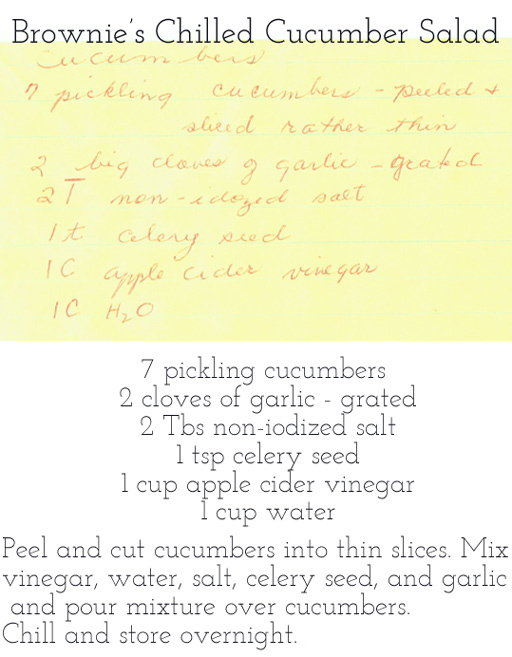 Brownie's Chilled Cucumber Salad
Cucumbers
7 pickling cucumbers - peeled +
sliced rather thin
2 big cloves of garlic - grated
2 T non-idozed salt
1 t celery seed
1 C apple cider vinegar
1 C H₂O
7 pickling cucumbers
2 cloves of garlic - grated
2 Tbs non-iodized salt
1 tsp celery seed
1 cup apple cider vinegar
1 cup water
Peel and cut cucumbers into thin slices. Mix
vinegar, water, salt, celery seed, and garlic
and pour mixture over cucumbers.
Chill and store overnight.